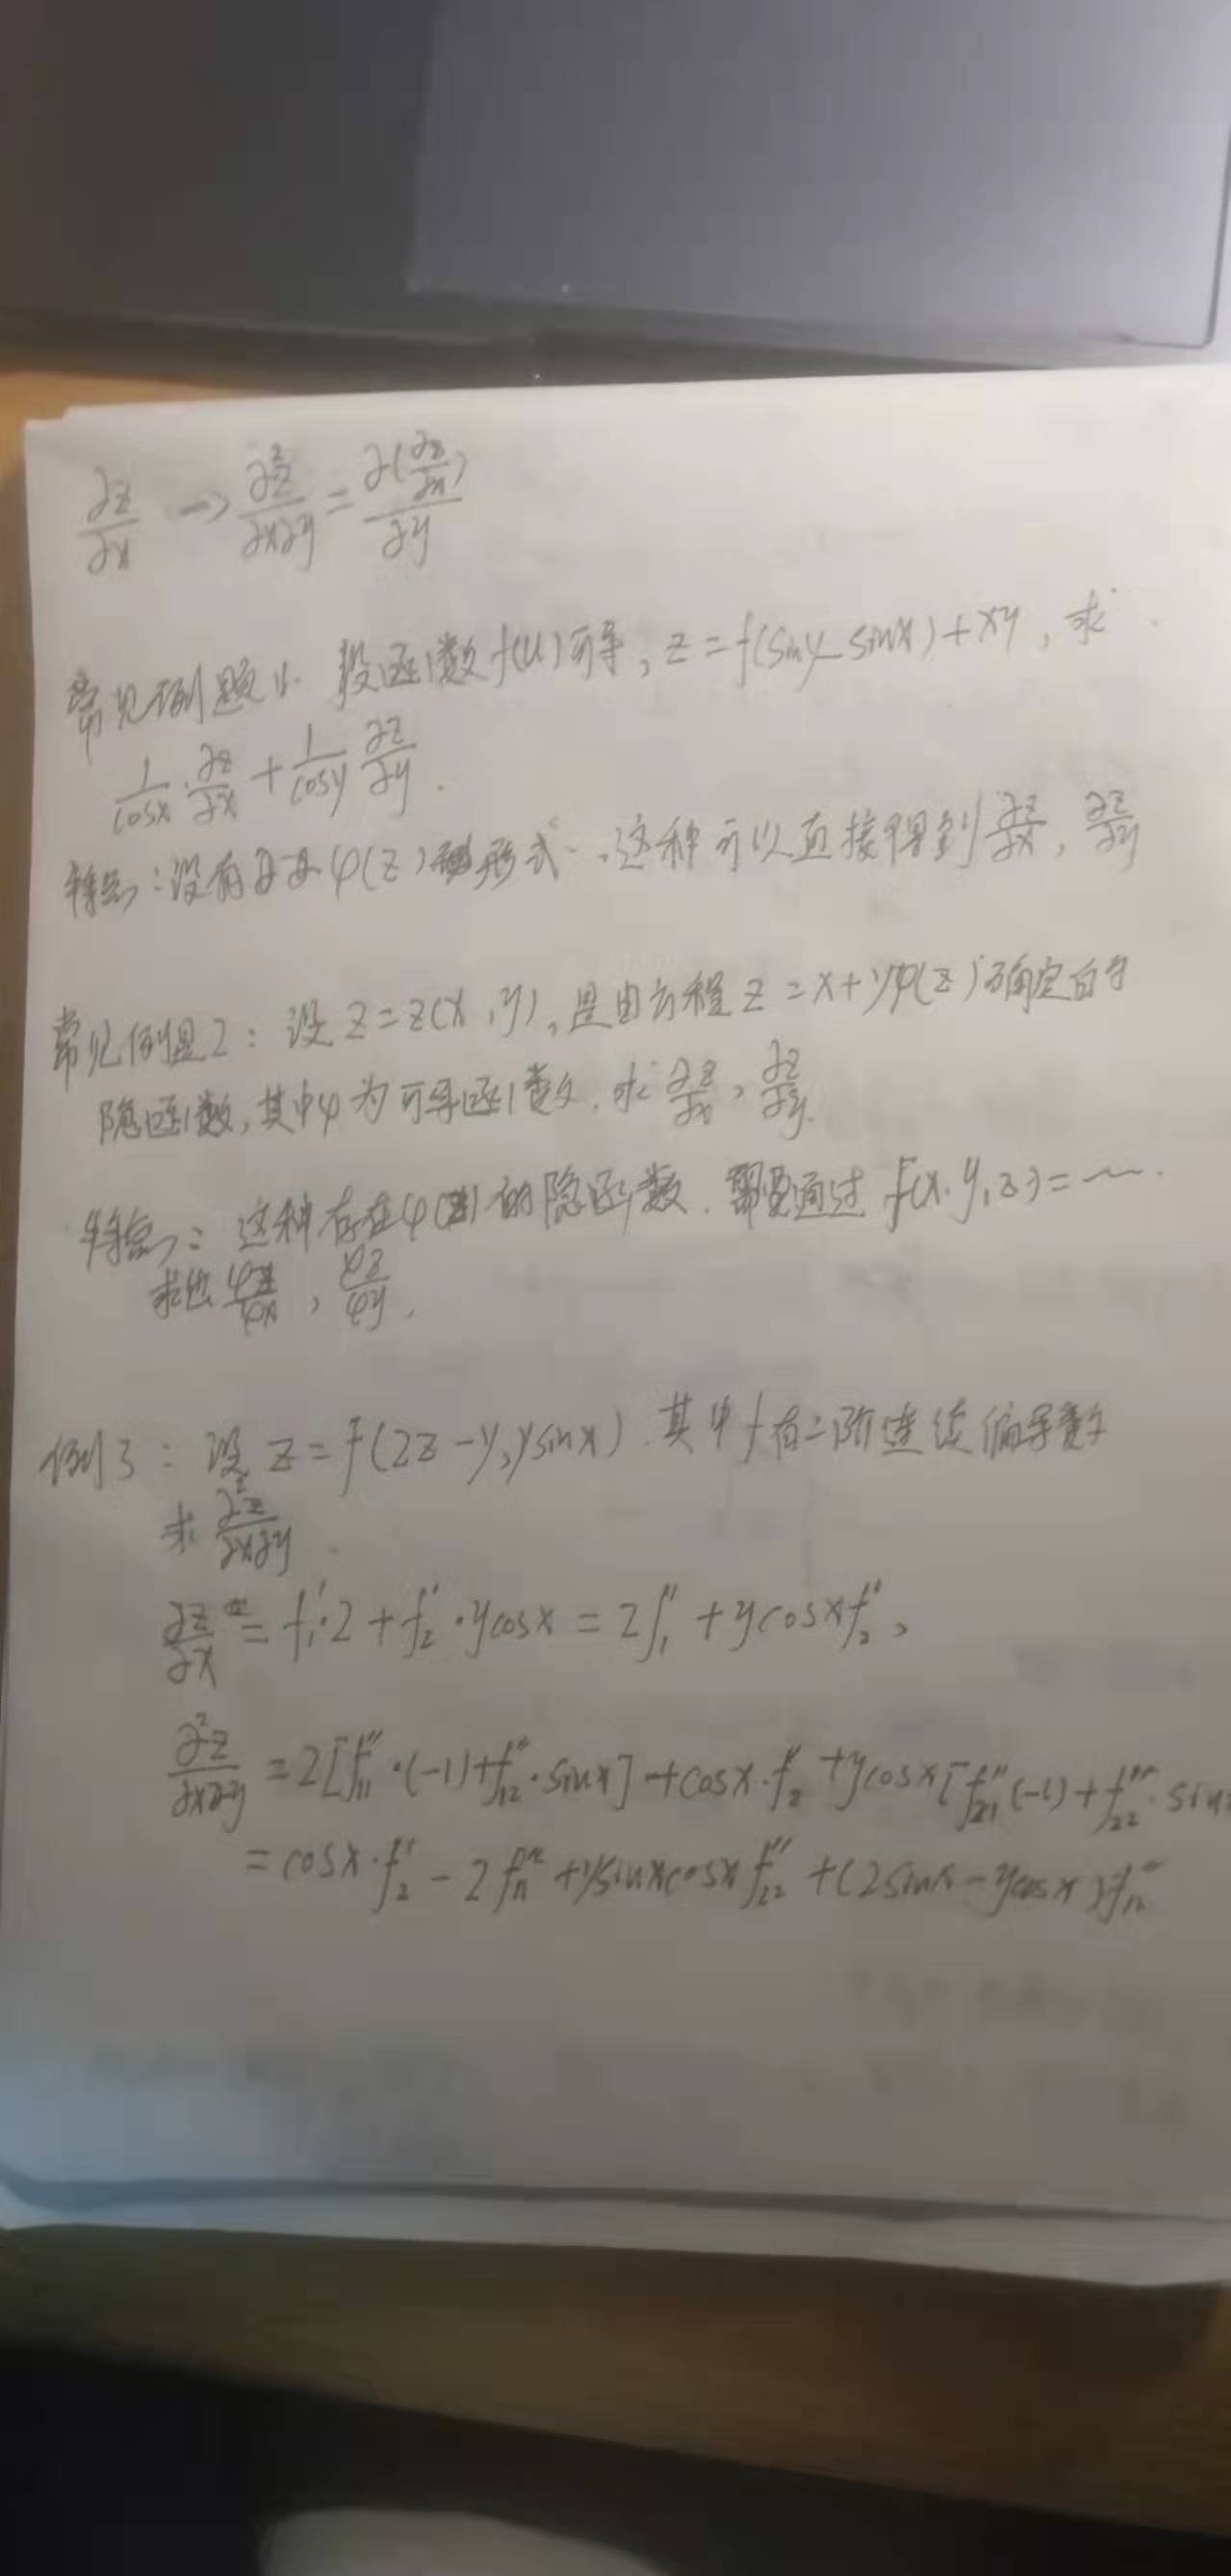 ∂z/∂x → ∂²z/∂x∂y = ∂(∂z/∂x)/∂y
常见例题1. 设函数f(u)可导, z = f(siny - sinx) + xy, 求
1/cosx · ∂z/∂x + 1/cosy ∂z/∂y.
特点: 没有 φ(z) 形式, 这种可以直接得到 ∂z/∂x, ∂z/∂y
常见例题2: 设 z = z(x, y), 是由方程 z = x + yφ(z) 确定的
隐函数, 其中φ为可导函数, 求 ∂z/∂x, ∂z/∂y.
特点: 这种存在φ(z)的隐函数, 需要通过 F(x, y, z) =
求出 φz/φx, φz/φy.
例3: 设 z = f(2z - y, ysinx), 其中f有二阶连续偏导数
求 ∂²z/∂x∂y.
∂z/∂x = f₁'·2 + f₂'·ycosx = 2f₁' + ycosxf₂',
∂²z/∂x∂y = 2[f₁₁''·(-1) + f₁₂''·sinx] + cosx·f₂' + ycosx[f₂₁''(-1) + f₂₂''·sin
= cosx·f₂' - 2f₁₁'' + ysinxcosxf₂₂'' + (2sinx - ycosx)f₁₂''